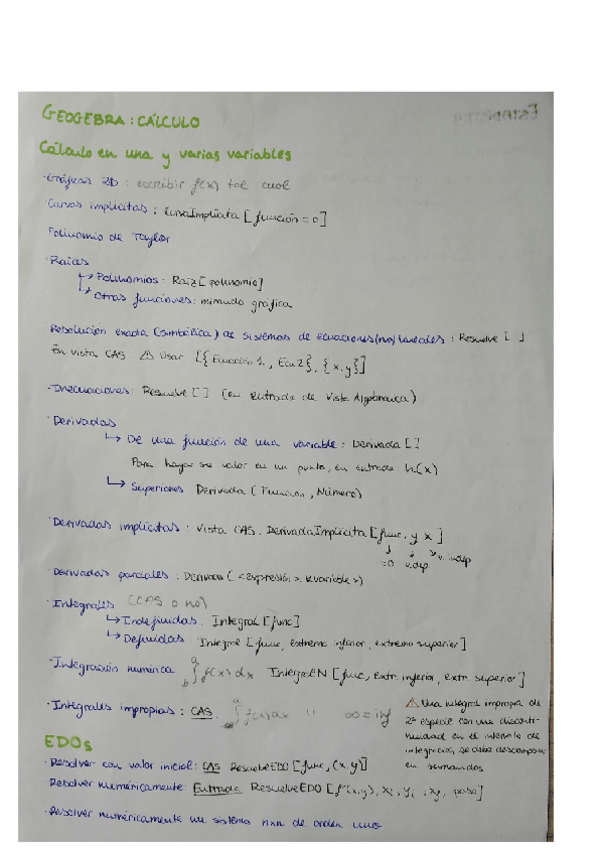 GEOGEBRA: CÁLCULO
Cálculo en una y varias variables
· Gráficas 2D: escribir f(x) tal cual
· Curvas implícitas: CurvaImplícita [función = 0]
Polinomio de Taylor
· Raíces
↳ Polinomios: Raíz [polinomio]
↳ Otras funciones: mirando gráfica
Resolución exacta (simbólica) de sistemas de ecuaciones (no) lineales: Resuelve [ ]
En vista CAS ⚠ Usar [{Ecuación 1, Ecu 2}, {x,y}]
· Inecuaciones: Resuelve [ ] (en entrada de Vista Algebraica)
· Derivadas
↳ De una función de una variable: Derivada [ ]
Para hallar su valor en un punto, en entrada h(x)
↳ Superiores Derivada (Función, Número)
· Derivadas implícitas: Vista CAS. DerivadaImplícita [func, y x]
=0 v.dep. v. indep
· Derivadas parciales: Derivada (<expresión>, <variable>)
· Integrales (CAS o no)
↳ Indefinidas. Integral [func]
↳ Definidas: Integral [func, extremo inferior, extremo superior]
· Integración numérica ∫ba f(x) dx IntegralN [func, Extr. inferior, extr superior]
· Integrales impropias: CAS. ∫a f(x) dx " ∞ = inf
⚠ Una integral impropia de
2ª especie con una disconti-
nuidad en el intervalo de
integración, se debe descomponer
en sumandos
EDOs
· Resolver con valor inicial: CAS ResuelveEDO [func, (x,y)]
· Resolver numéricamente: Entrada ResuelveEDO [f'(x,y), xi, yi, xf, paso]
· Resolver numéricamente un sistema nxn de orden uno